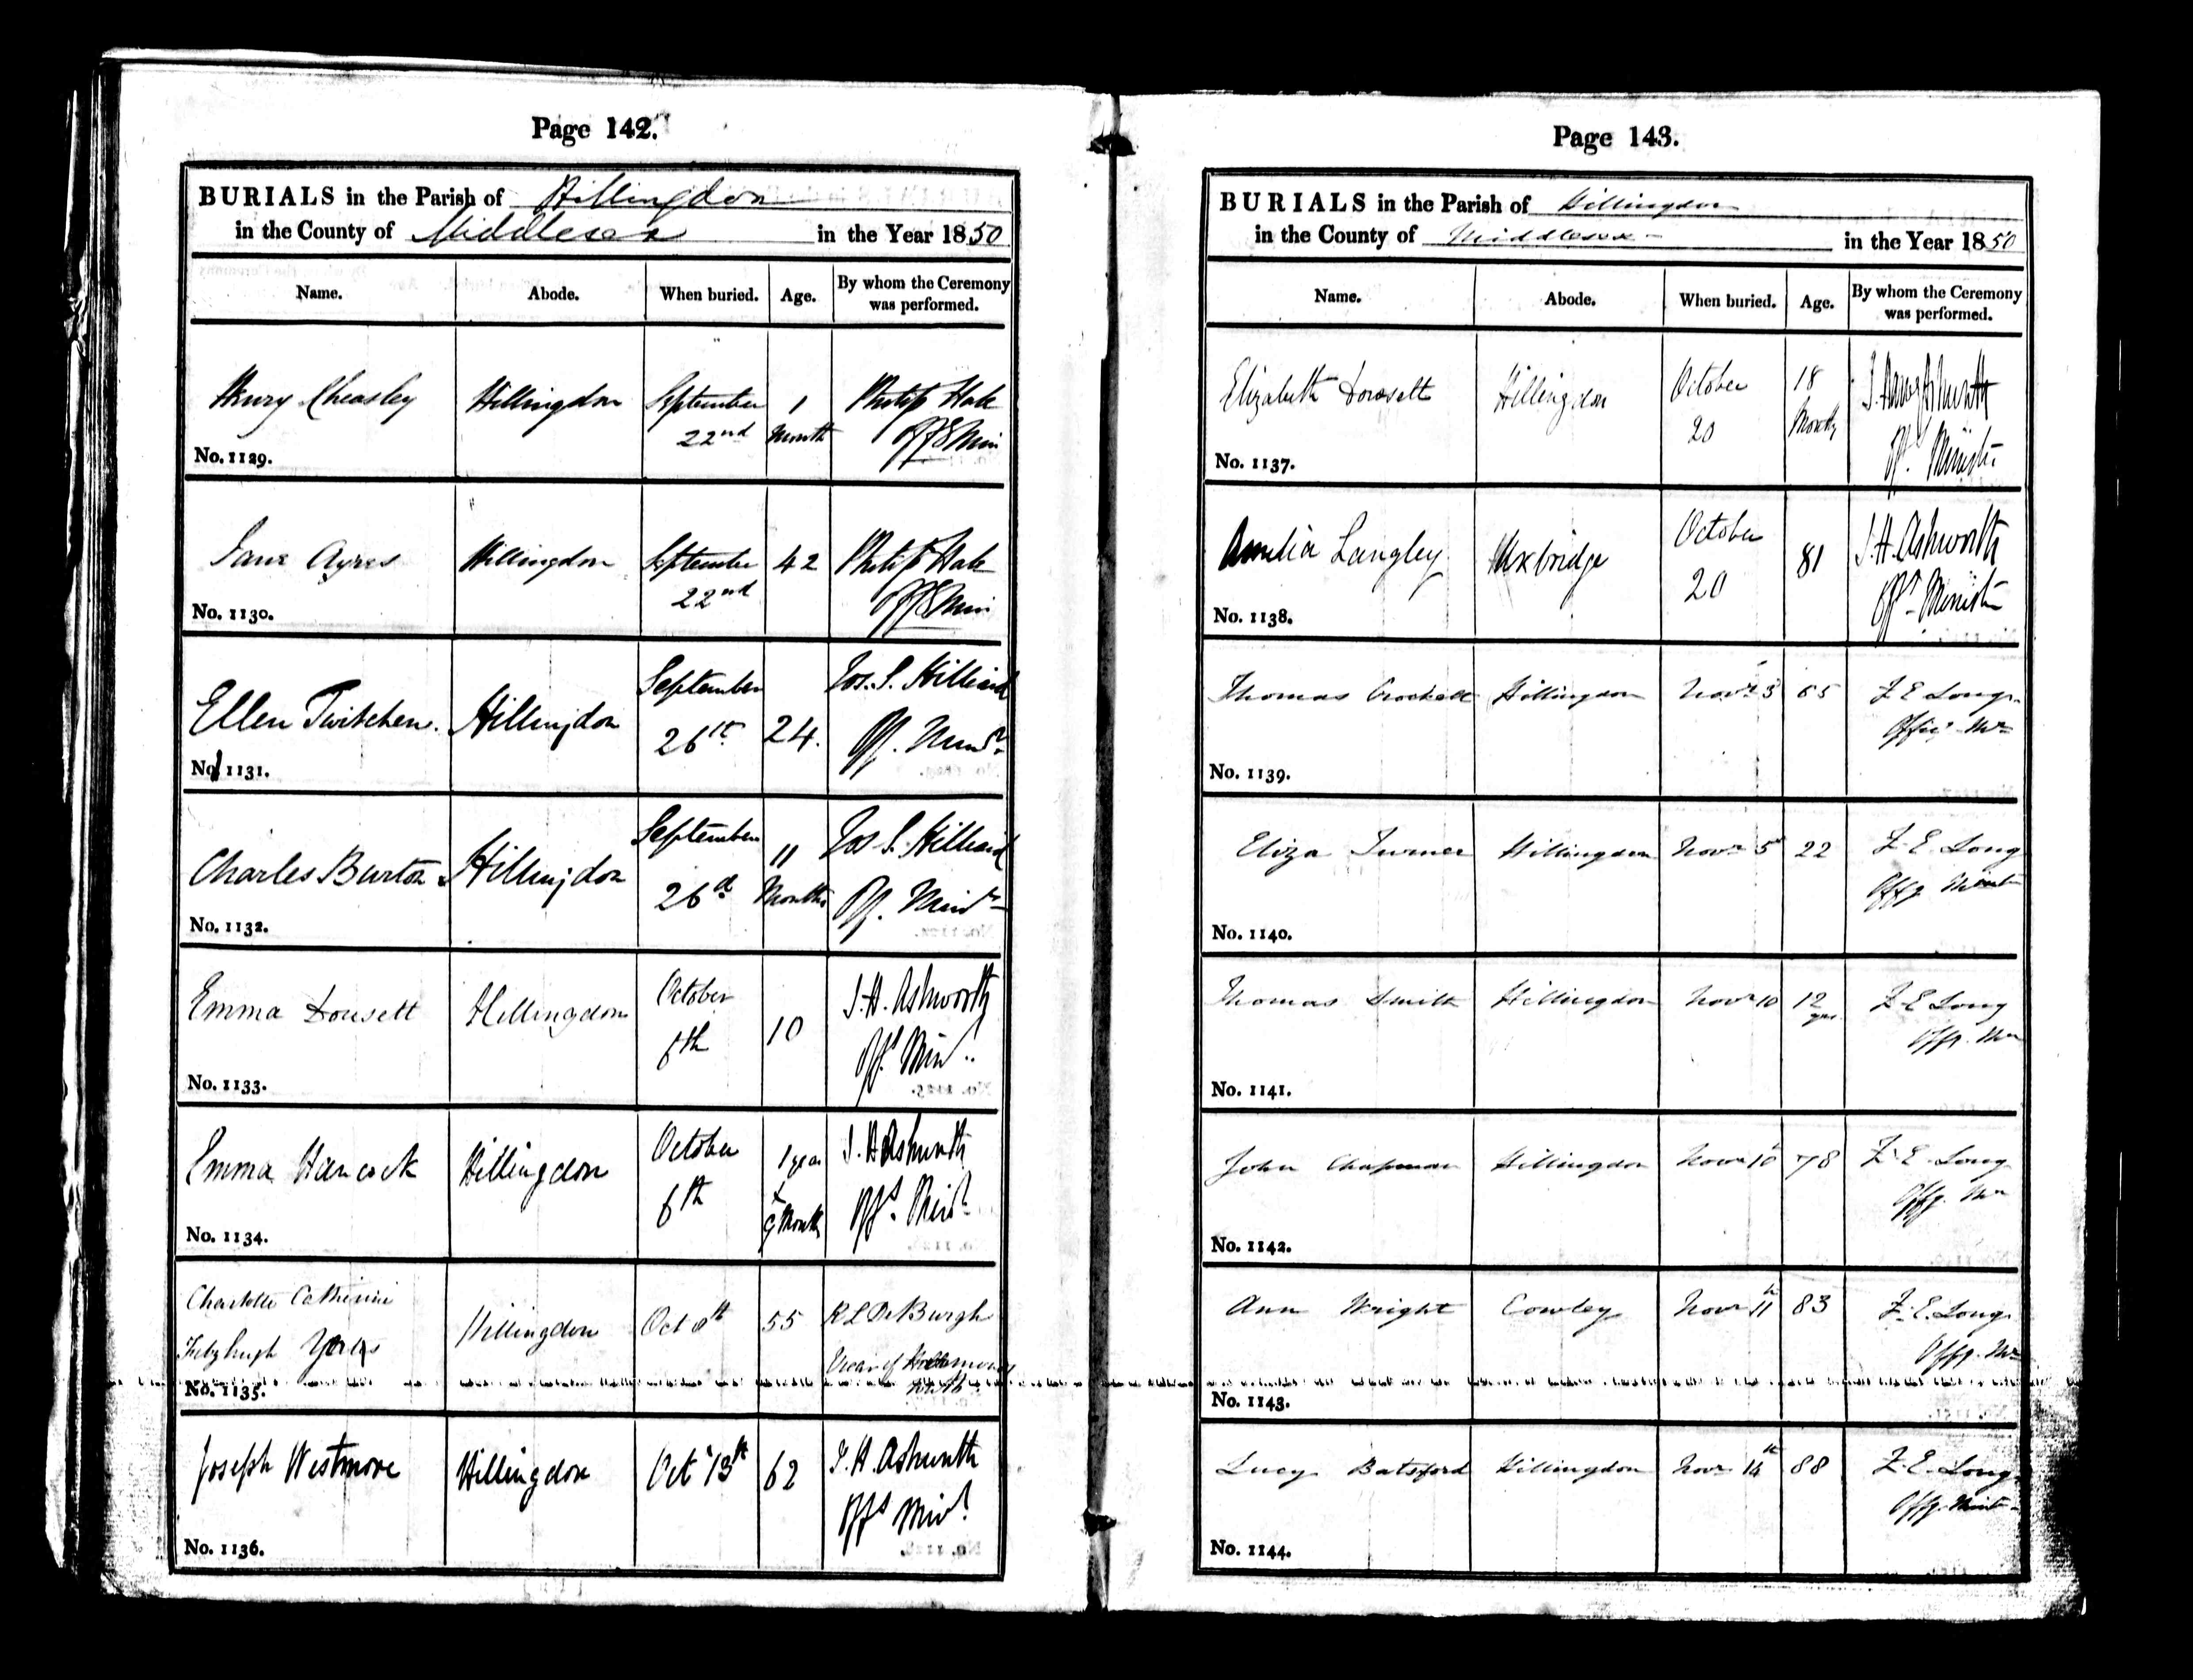 Page 142.
BURIALS in the Parish of Hillingdon
in the County of Middlesex in the Year 1850
Name. Abode. When buried. Age. By whom the Ceremony was performed.
Henry Cheasley Hillingdon September 1 Philip Hale
22nd Month Offg Min
No. 1129.
Jane Ayres Hillingdon September 42 Philip Hale
22nd Offg Min
No. 1130.
Ellen Twitchen. Hillingdon September 24. Jos. S. Hilliard
26th Off. Minr
No. 1131.
Charles Burton Hillingdon September 11 Jos. S. Hilliard
26th Months Off. Minr
No. 1132.
Emma Dowsett Hillingdon October 10 J. H. Ashworth
6th Offg Minr
No. 1133.
Emma Hancock Hillingdon October 1 year J. H. Ashworth
6th & 9 Month Offg Minr
No. 1134.
Charlotte Catherine
Yates Hillingdon Oct 8th 55 R L De Burgh
Vicar of
No. 1135.
Joseph Westmore Hillingdon Oct 13th 62 J. H. Ashworth
Offg Minr
No. 1136.
Page 143.
BURIALS in the Parish of Hillingdon
in the County of Middlesex in the Year 1850
Name. Abode. When buried. Age. By whom the Ceremony was performed.
Elizabeth Dowsett Hillingdon October 18 J. Ashworth
20 Months Offg Ministr
No. 1137.
Amelia Langley Uxbridge October 81 J. H. Ashworth
20 Offg Ministr
No. 1138.
Thomas Crockett Hillingdon Novr 3 65 F. E. Long
Offig Mr
No. 1139.
Eliza Turner Hillingdon Novr 5 22 F. E. Long
Offg Minist
No. 1140.
Thomas Smith Hillingdon Novr 10 12 F E Long
yrs. Offg. Mr
No. 1141.
John Chapman Hillingdon Novr 10 78 F. E. Long
Offg. Mr
No. 1142.
Ann Wright Cowley Novr 11th 83 F. E. Long
Offg. Mr
No. 1143.
Lucy Batsford Hillingdon Novr 14th 88 F. E. Long
Offg. Minist
No. 1144.